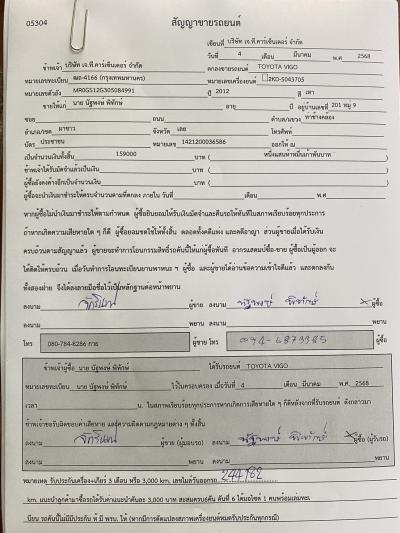 05304
สัญญาขายรถยนต์
เขียนที่ บริษัท เจ.ที.คาร์เซ็นเตอร์ จำกัด
วันที่ 4 เดือน มีนาคม พ.ศ 2568
ข้าพเจ้า บริษัท เจ.ที.คาร์เซ็นเตอร์ จำกัด ตกลงขายรถยนต์ TOYOTA VIGO
หมายเลขทะเบียน ฒถ-4166 (กรุงเทพมหานคร) หมายเลขเครื่องยนต์ 2KD-5043705
หมายเลขตัวถัง MR0GS12G305084991 ปี 2012 สี เทา
ขายให้แก่ นาย นัฐพงษ์ พิทักษ์ อายุ ปี อยู่บ้านเลขที่ 201 หมู่ 9
ซอย ถนน ตำบล/แขวง ท่าช้างคล้อง
อำเภอ/เขต ผาขาว จังหวัด เลย โทรศัพท์
บัตร ประชาชน หมายเลข 1421200036586 ออกให้ ณ
เป็นจำนวนเงินทั้งสิ้น 159000 บาท ( หนึ่งแสนห้าหมื่นเก้าพันบาท
ข้าพเจ้าได้รับมัดจำแล้วเป็นเงิน บาท (
ผู้ซื้อยังคงค้างอีกเป็นจำนวนเงิน บาท (
ผู้ซื้อจะนำเงินมาชำระให้ครบจำนวนตามที่ตกลง ภายใน วันที่ เดือน พ.ศ.
หากผู้ซื้อไม่นำเงินมาชำระตามกำหนด ผู้ซื้อยินยอมให้ริบเงินมัดจำและคืนรถให้ทันทีในสภาพเรียบร้อยทุกประการ
ถ้าหากเกิดความเสียหายใด ๆ ก็ดี ผู้ซื้อยอมชดใช้ให้ทั้งสิ้น ตลอดทั้งคดีแพ่ง และคดีอาญา ส่วนผู้ขายเมื่อได้รับเงิน
ครบถ้วนตามสัญญาแล้ว ผู้ขายจะทำการโอนกรรมสิทธิ์รถคันนี้ให้แก่ผู้ซื้อทันที อากรแสตมป์ซื้อ-ขาย ผู้ซื้อเป็นผู้ออก จะ
ได้ติดให้ครบถ้วน เมื่อวันทำการโอนทะเบียนยานพาหนะ ฯ ผู้ซื้อ และผู้ขายได้อ่านข้อความเข้าใจดีแล้ว และตกลงกัน
ทั้งสองฝ่าย จึงได้ลงลายมือชื่อไว้เป็นหลักฐานต่อหน้าพยาน
ลงนาม ผู้ขาย ลงนาม นัฐพงษ์ พิทักษ์ ผู้ซื้อ
ลงนาม พยาน ลงนาม พยาน
โทร 080-784-8286 กาย ผู้ขาย โทร ผู้ซื้อ
ข้าพเจ้าผู้ซื้อ นาย นัฐพงษ์ พิทักษ์ ได้รับรถยนต์ TOYOTA VIGO
หมายเลขทะเบียน นาย นัฐพงษ์ พิทักษ์ ไว้ในครอบครอง เมื่อวันที่ 4 เดือน มีนาคม พ.ศ. 2568
เวลา น. ในสภาพเรียบร้อยทุกประการหากเกิดการเสียหายใด ๆ ก็ดีหลังจากที่รับรถยนต์ ดังกล่าวมา
ข้าพเจ้าขอรับผิดชอบค่าเสียหาย และความผิดตามกฎหมายต่าง ๆ ทั้งสิ้น
ลงนาม ผู้ขาย (ผู้มอบรถ) ลงนาม นัฐพงษ์ พิทักษ์ ผู้ซื้อ (ผู้รับรถ)
ลงนาม พยาน ลงนาม พยาน
หมายเหตุ รับประกันเครื่อง+เกียร์ 3 เดือน หรือ 3,000 km. เลขไมล์วันออกรถ 244982
km. แนะนำลูกค้ามาซื้อรถได้รับค่าแนะนำคันละ 3,000 บาท สะสมครบ6คัน คันที่ 6 ได้มอไซค์ 1 คันพร้อมเล่มทะเ
บียน รถคันนี้ไม่มีมีประกัน ที่ มี พรบ. ให้ (หากมีการดัดแปลงสภาพเครื่องยนต์หมดรับประกันทุกกรณี)